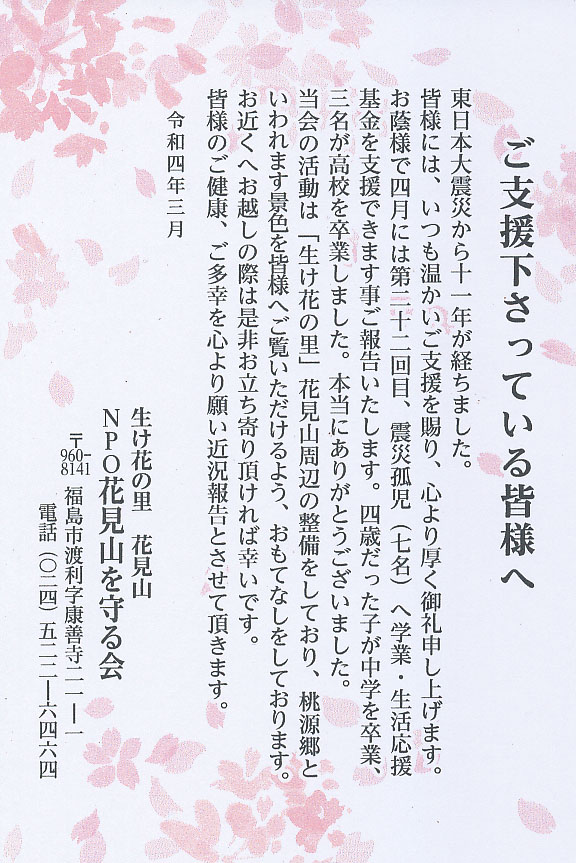 ご支援下さっている皆様へ
東日本大震災から十一年が経ちました。
皆様には、いつも温かいご支援を賜り、心より厚く御礼申し上げます。
お蔭様で四月には第二十二回目、震災孤児（七名）へ学業・生活応援
基金を支援できます事ご報告いたします。四歳だった子が中学を卒業、
三名が高校を卒業しました。本当にありがとうございました。
当会の活動は「生け花の里」花見山周辺の整備をしており、桃源郷と
いわれます景色を皆様へご覧いただけるよう、おもてなしをしております。
お近くへお越しの際は是非お立ち寄り頂ければ幸いです。
皆様のご健康、ご多幸を心より願い近況報告とさせて頂きます。
令和四年三月
生け花の里　花見山
NPO花見山を守る会
〒960-8141　福島市渡利字康善寺二一ー一
電話（〇二四）五二二ー六四六四